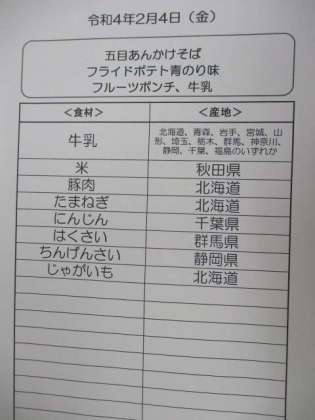 令和4年2月4日（金）
五目あんかけそば
フライドポテト青のり味
フルーツポンチ、牛乳
＜食材＞ ＜産地＞
牛乳 北海道、青森、岩手、宮城、山
形、埼玉、栃木、群馬、神奈川、
静岡、千葉、福島のいずれか
米 秋田県
豚肉 北海道
たまねぎ 北海道
にんじん 千葉県
はくさい 群馬県
ちんげんさい 静岡県
じゃがいも 北海道